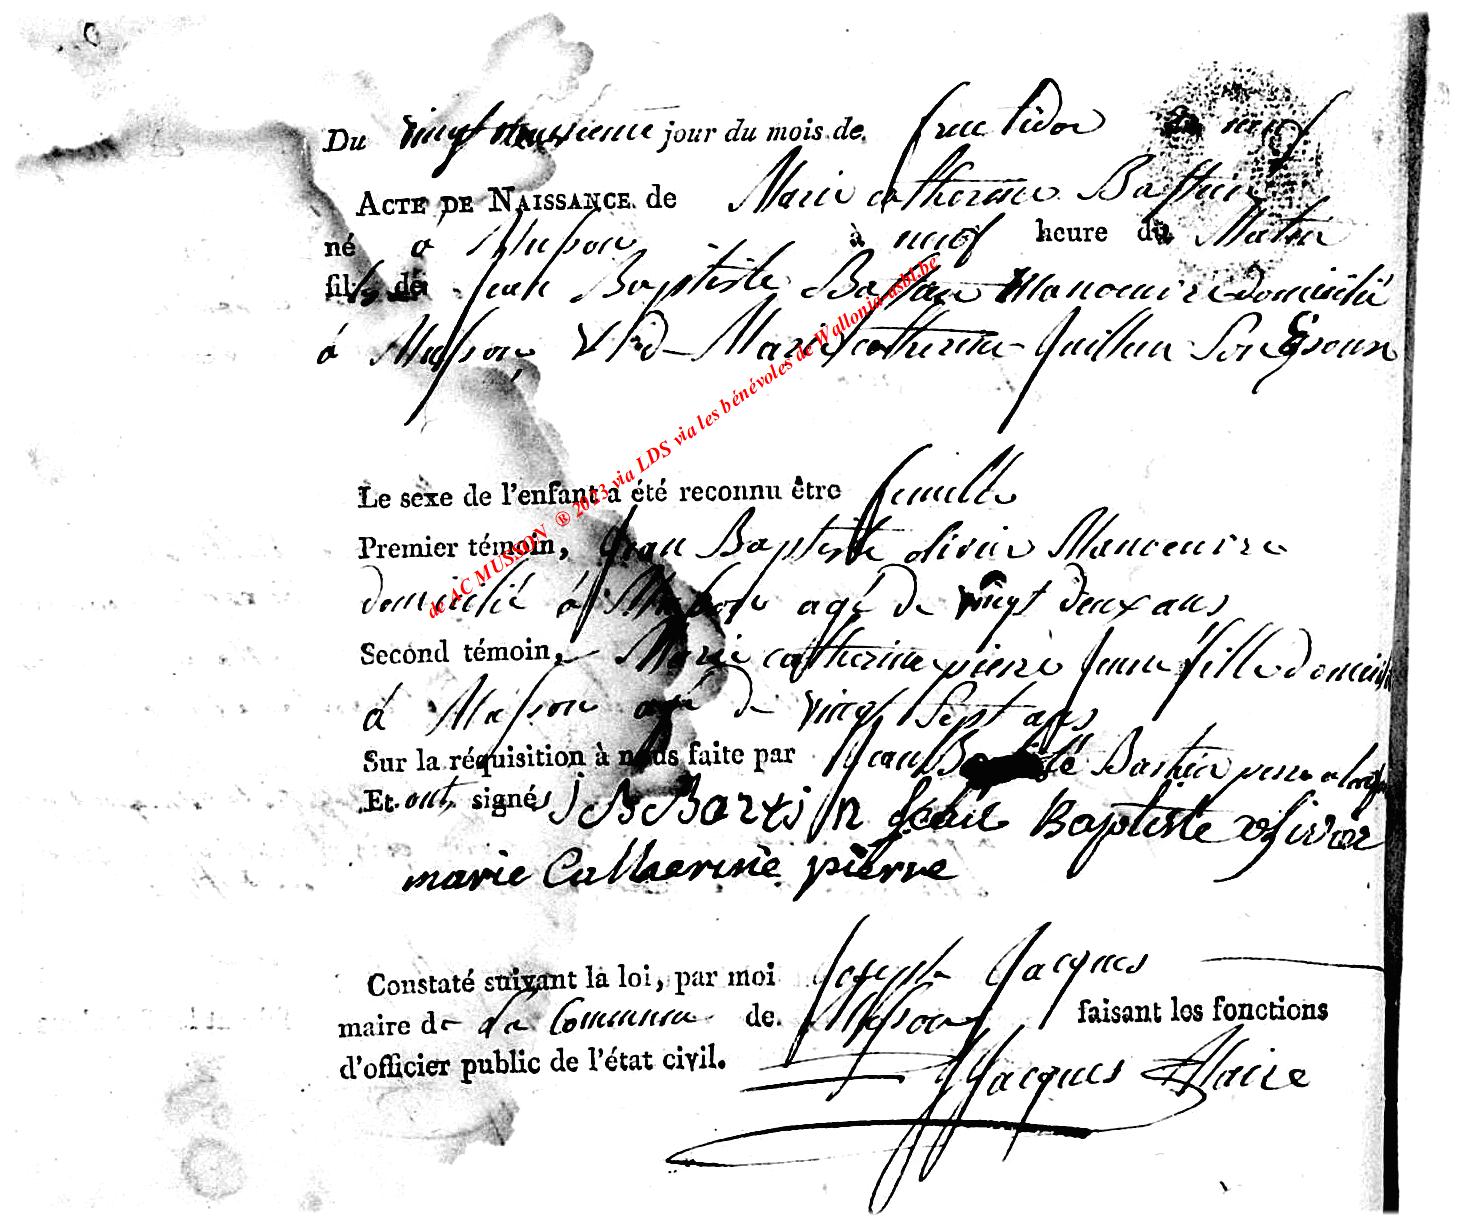 Du vingt neuvieme jour du mois de fructidor an neuf
ACTE DE NAISSANCE de Marie catherine Bastien
né à Musson à neuf heure du Matin
fille de Jean Baptiste Bastien Manoeuvre domicilié
à Musson Marie catherine Guillaun Son Epouse
Le sexe de l'enfant a été reconnu être femelle
Premier témoin, Jean Baptiste olivier Manoeuvre
domicilié à Musson agé de vingt deux ans
Second témoin, Marie catherine pierre jeune fille domicilié
à Musson agé de vingt Sept ans
Sur la réquisition à nous faite par Jean Baptiste Bastien pere
Et ont signés J B Bastin Jean Baptiste olivier
marie Catherine pierre
Constaté suivant la loi, par moi Joseph Jacques
maire de la Commune de Musson faisant les fonctions
d'officier public de l'état civil. J Jacques Maire
de AC MUSSON ® 2023 via LDS via les bénévoles de Wallonia-asbl.be